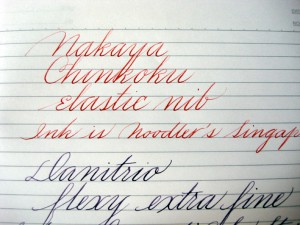 Nakaya
Chinkoku
Elastic nib
Ink is Noodler's Singap
Danitrio
flexy extra fine